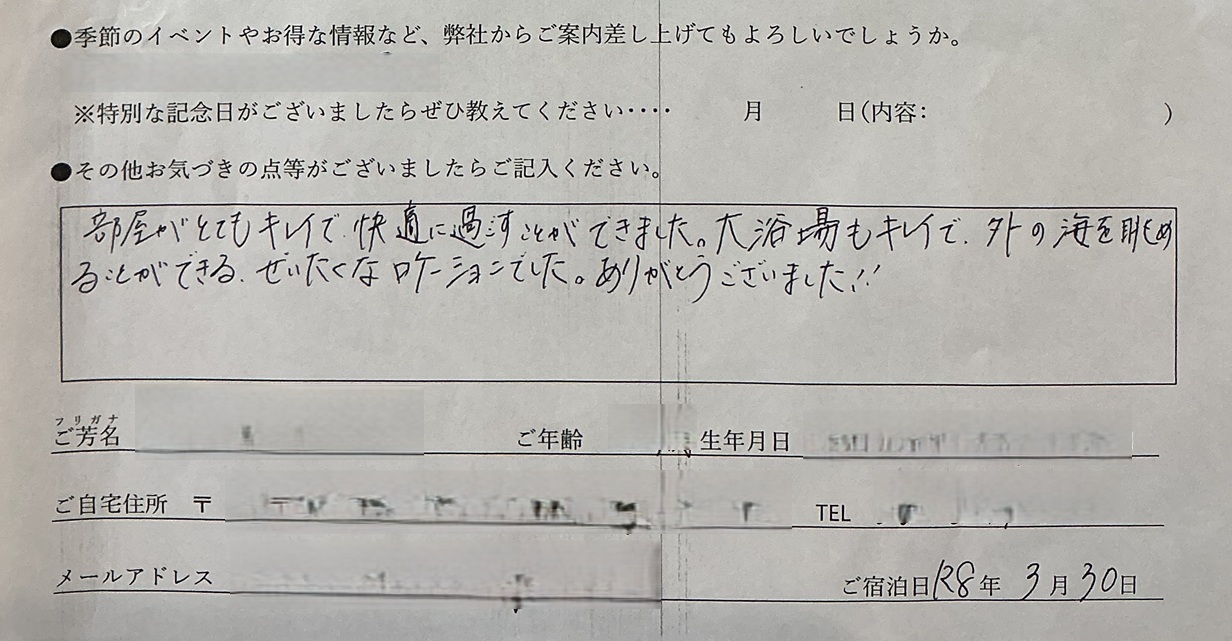 ●季節のイベントやお得な情報など、弊社からご案内差し上げてもよろしいでしょうか。
※特別な記念日がございましたらぜひ教えてください‥‥ 月 日(内容: )
●その他お気づきの点等がございましたらご記入ください。
部屋がとてもキレイで、快適に過ごすことができました。大浴場もキレイで、外の海を眺め
ることができる、ぜいたくなロケーションでした。ありがとうございました!!
フリガナ
ご芳名 ご年齢 生年月日
ご自宅住所 〒 TEL
メールアドレス ご宿泊日 R8年 3月 30日